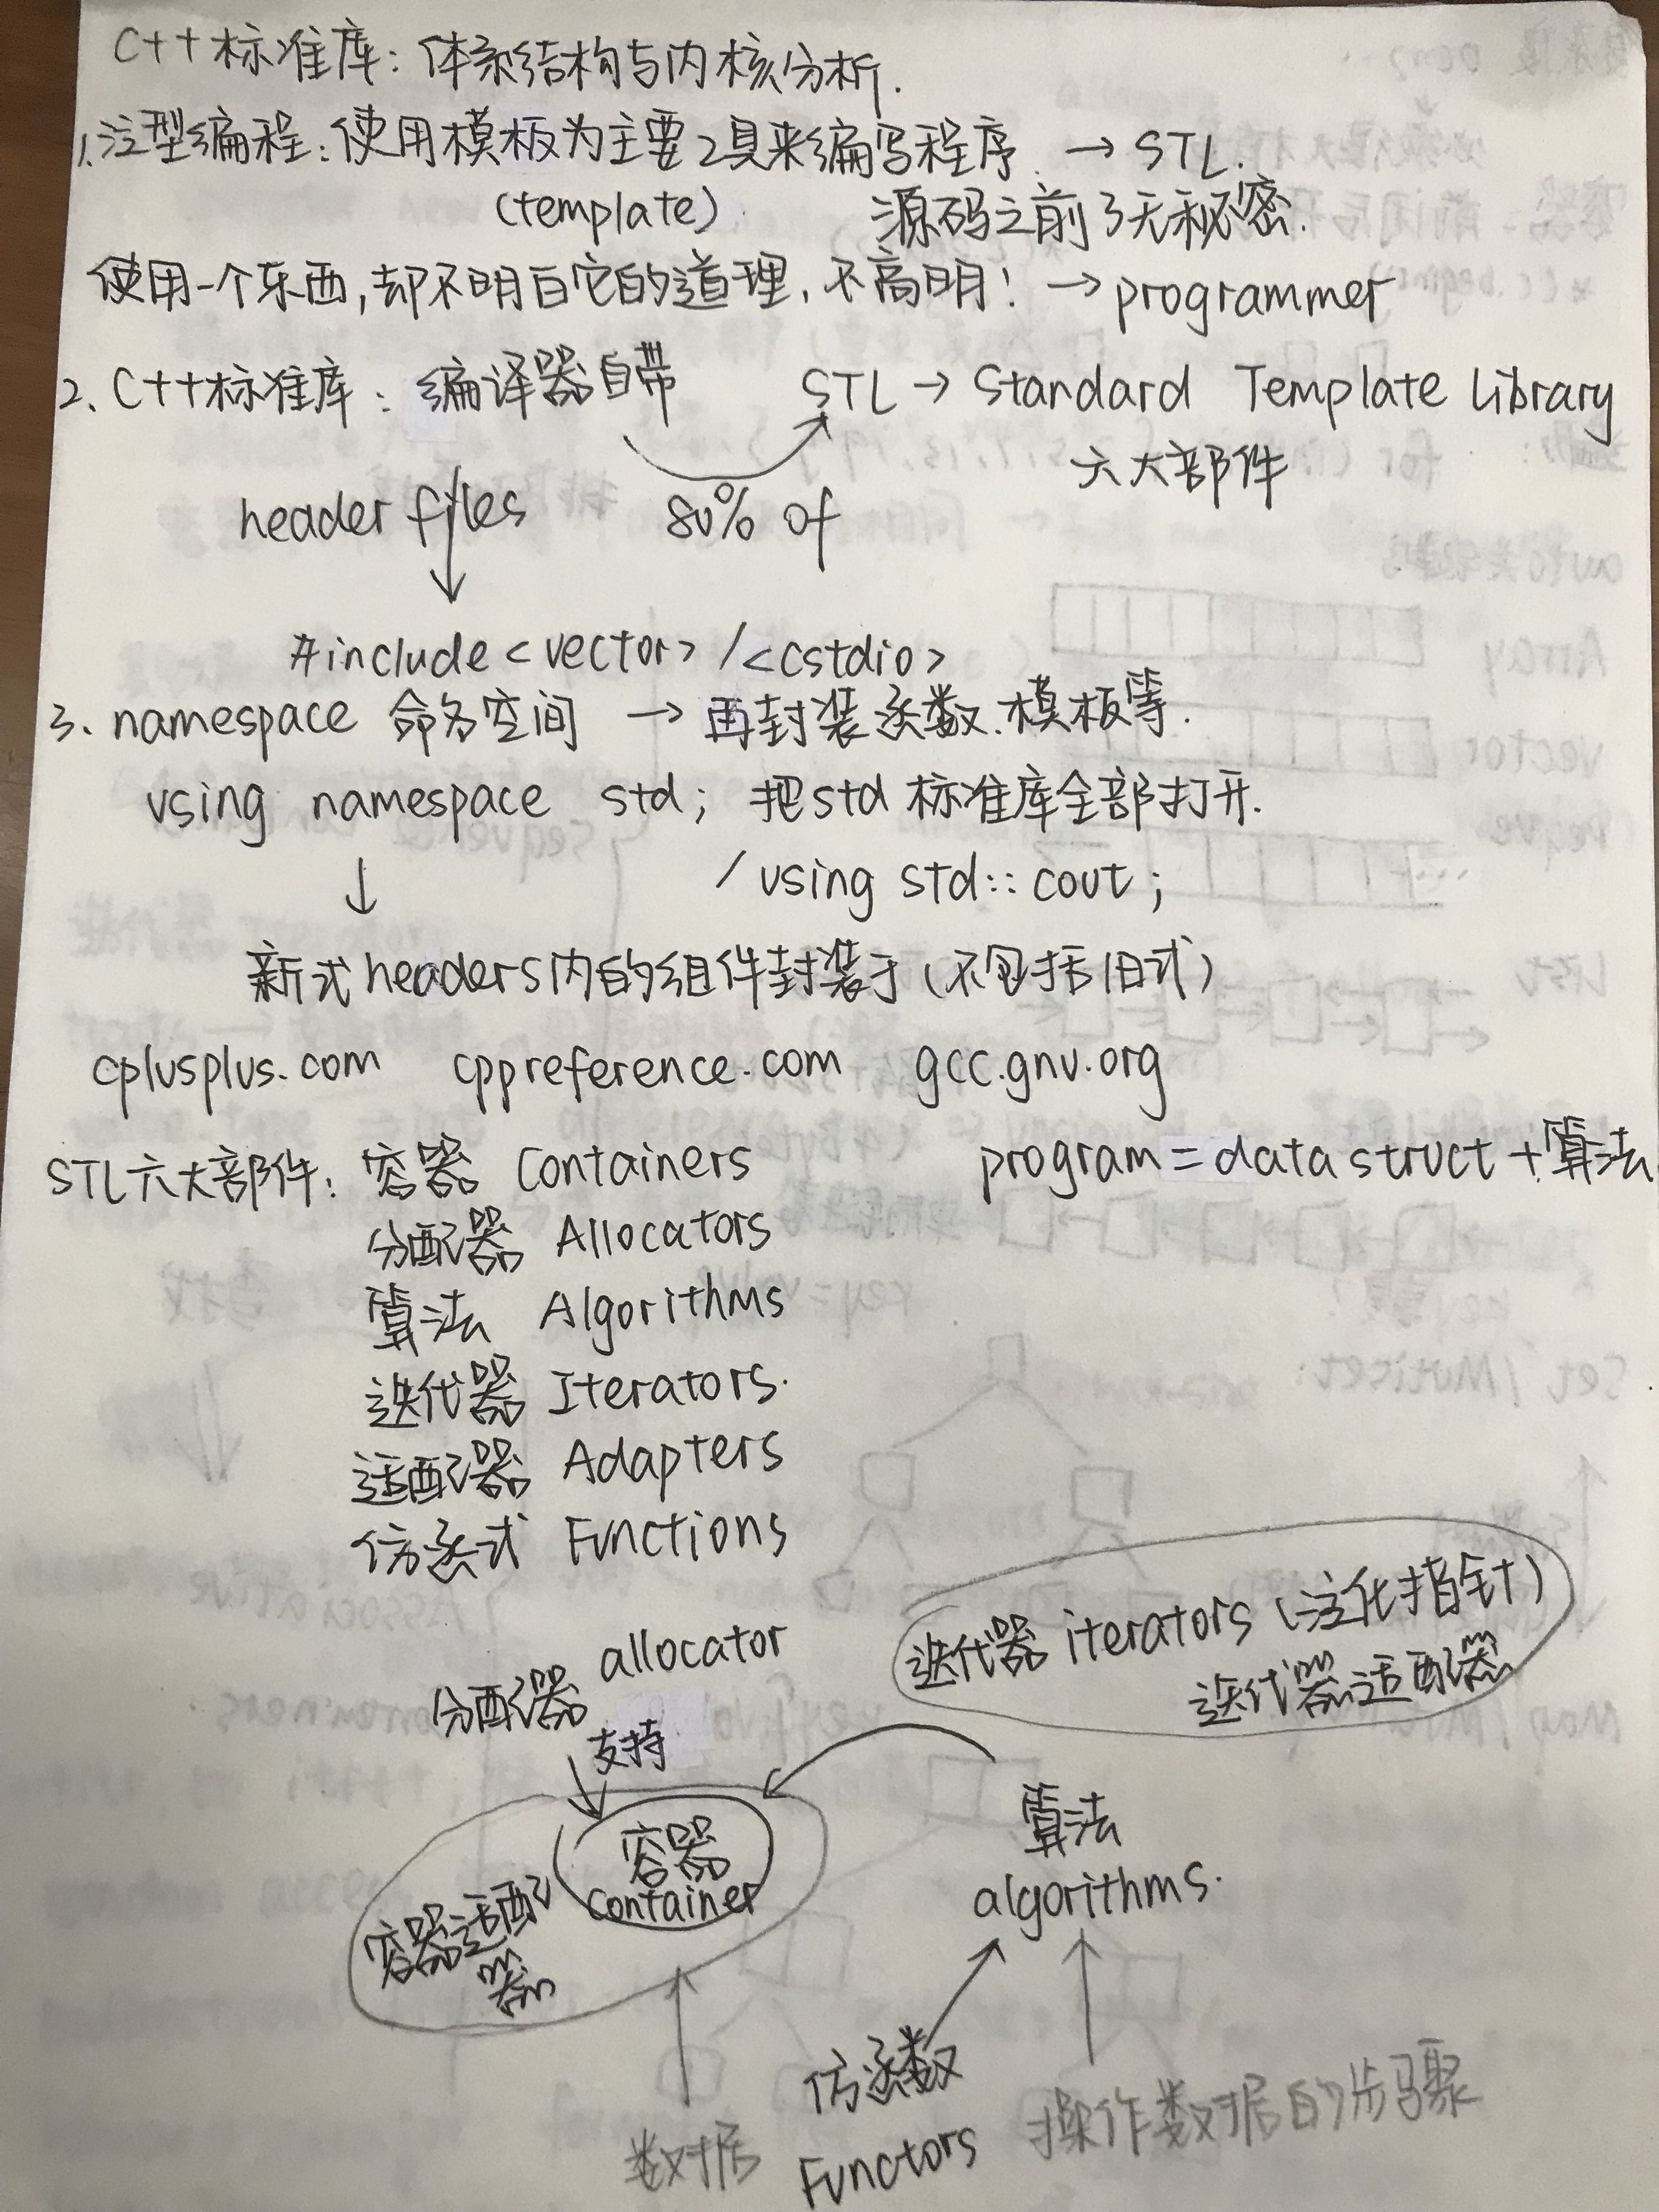 C++标准库：体系结构与内核分析.
1.泛型编程：使用模板为主要工具来编写程序. → STL.
(template) 源码之前了无秘密.
使用一个东西,却不明白它的道理,不高明！ → programmer
2、C++标准库：编译器自带 STL → Standard Template Library
六大部件
header files 80% of
#include<vector> /<cstdio>
3、namespace 命名空间 → 再封装函数.模板等.
using namespace std; 把std标准库全部打开.
/ using std::cout;
新式headers内的组件封装于(不包括旧式)
cplusplus.com cppreference.com gcc.gnu.org
STL六大部件: 容器 Containers program=data struct+算法
分配器 Allocators
算法 Algorithms
迭代器 Iterators.
适配器 Adapters
仿函式 Functions
迭代器 iterators (泛化指针)
迭代器适配器
分配器 allocator
支持
容器
Container
容器适配
器
算法
algorithms.
仿函数
Functors
数据
操作数据的步骤